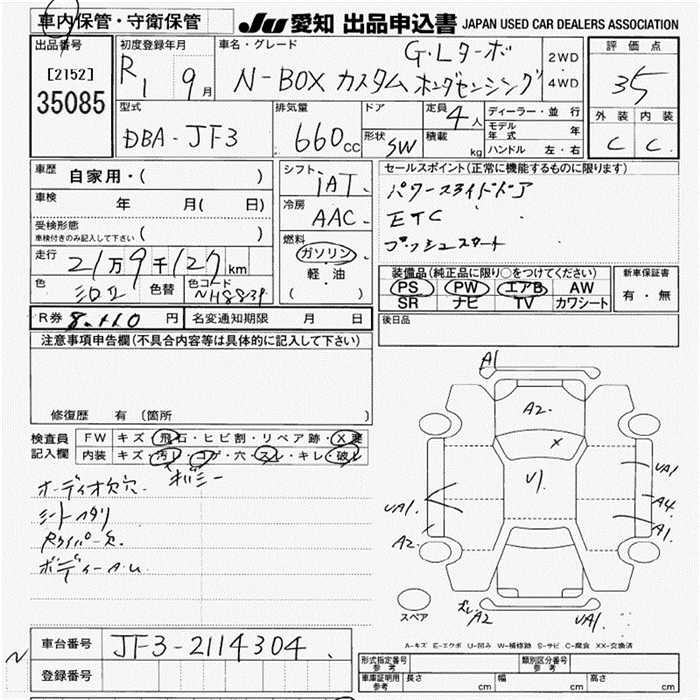 車内保管・守衛保管
JU 愛知 出品申込書 JAPAN USED CAR DEALERS ASSOCIATION
出品番号
[2152]
35085
初度登録年月
R1 9月
車名・グレード
G・Lターボ
N-BOX カスタム ホンダセンシング
2WD
4WD
評価点
35
外装 内装
C C
型式
DBA-JF3
排気量
660cc
ドア
形状 SW
定員 4人
積載 kg
ディーラー・並行
モデル年式 年
ハンドル 左・右
車歴
自家用・( )
車検
年 月( 日)
受検形態
車検付きのみ記入して下さい ( )
走行
21万9千127km
色
色替
色コード
NH883P
シフト
IAT
冷房
AAC
燃料
ガソリン
軽・油
( )
セールスポイント(正常に機能するものに限ります)
パワースライドドア
ETC
プッシュスタート
装備品(純正品に限り○をつけてください)
PS PW エアB AW
SR ナビ TV カワシート
新車保証書
有・無
R券 8,110円
名変通知期限 月 日
後日品
注意事項申告欄(不具合内容等は具体的に記入して下さい)
修復歴 有 (箇所 )
検査員
記入欄
FW キズ・飛石・ヒビ割・リペア跡・X要
内装 キズ・汚レ・コゲ・穴・スレ・キレ・破レ
オーディオ欠穴
シートヘタリ
Rワイパー欠
ボディーA.U
A1
A2
X
U1
UA1
A4
A1
UA1
A2
スレ A2
UA1
スペア
A-キズ E-エクボ U-凹み W-補修跡 S-サビ C-腐食 XX-交換済
車台番号 JF3-2114304
登録番号
型式指定番号
参考
類別区分番号
参考
車庫証明用
参考
長さ cm 幅 cm 高さ cm